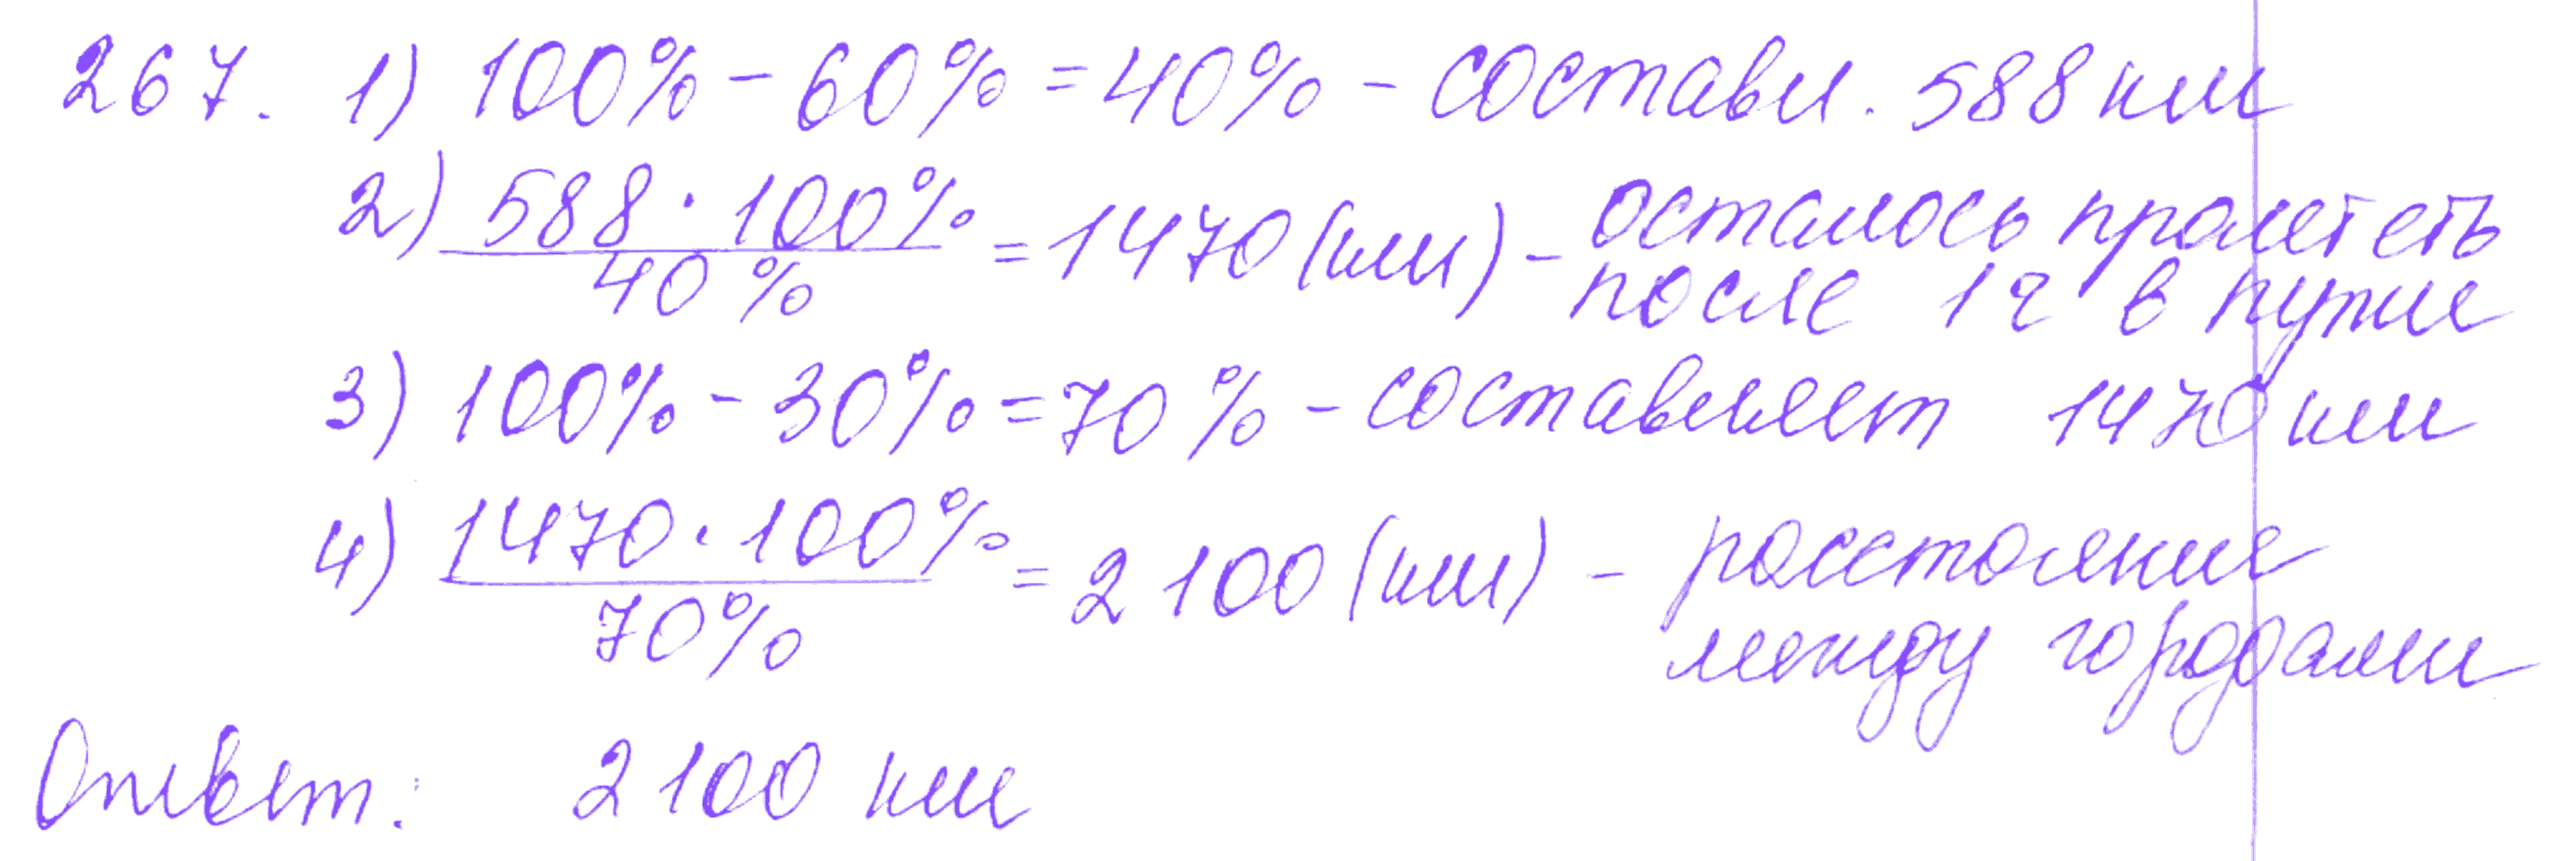 267. 1) 100% - 60% = 40% - составл. 588 км
2) 588 · 100% / 40% = 1470 (км) - осталось пролететь
после 1ч в пути
3) 100% - 30% = 70% - составляет 1470 км
4) 1470 · 100% / 70% = 2100 (км) - расстояние
между городами
Ответ: 2100 км